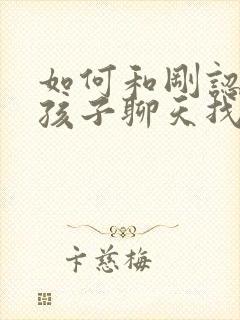 如何和剛認
孩子聊天找
卞慈梅